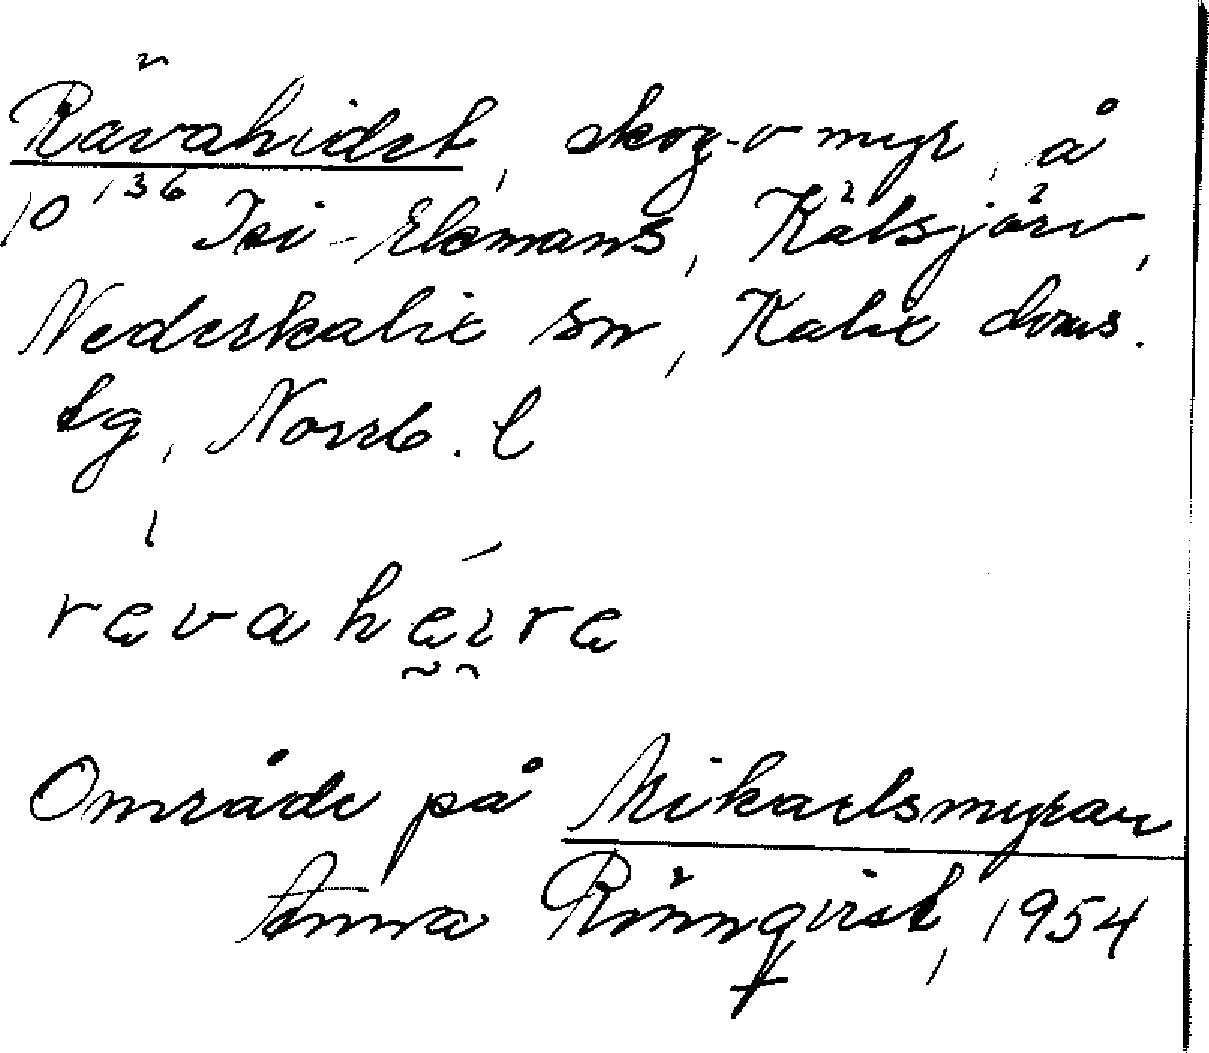 Rävahidet, skog o myr, å
10¹³⁶ Isi-Ekmans, Kälsjärv,
Nederkalix sn, Kalix doms.
tg, Norrb. l
rävahäire
Område på Mikaelsmyran
Anna Rönnqvist, 1954